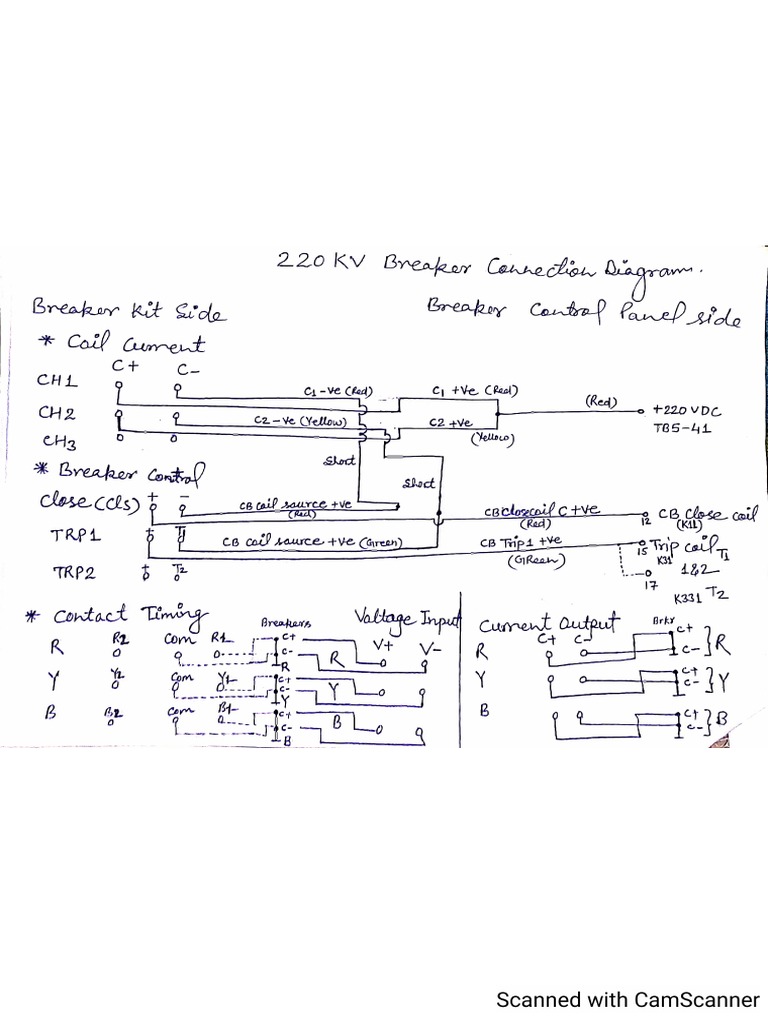 220 KV Breaker Connection Diagram.
Breaker Kit Side
Breaker Control Panel side
* Coil Current
C+ C-
CH1
C1 -ve (Red) C1 +ve (Red)
(Red)
+220 VDC
CH2
C2 -ve (Yellow) C2 +ve
TB5-41
(Yellow)
CH3
Short
* Breaker Control
Short
+ -
Close (Cls) CB coil source +ve CB Closecoil C +ve CB Close coil
(Red) (Red) 12 (K11)
TRP1 + T1 CB coil source +ve (Green) CB Trip1 +ve 15 Trip coil T1
(GReen) K31 1&2
TRP2 + T2
17
K331 T2
* Contact Timing
Breakers Voltage Input Current Output Brkr
R R2 Com R1 C+ C- R R V+ V- R C+ C- C+ C- R
Y Y2 Com Y1 C+ C- Y Y Y C+ C- Y
B B2 Com B1 C+ C- B B B C+ C- B
Scanned with CamScanner